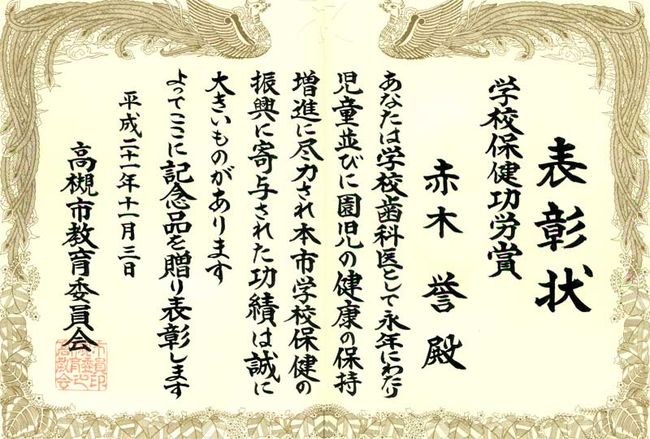 表彰状
学校保健功労賞
赤木 誉 殿
あなたは学校歯科医として永年にわたり
児童並びに園児の健康の保持
増進に尽力され本市学校保健の
振興に寄与された功績は誠に
大きいものがあります
よってここに記念品を贈り表彰します
平成二十一年十一月三日
高槻市教育委員会